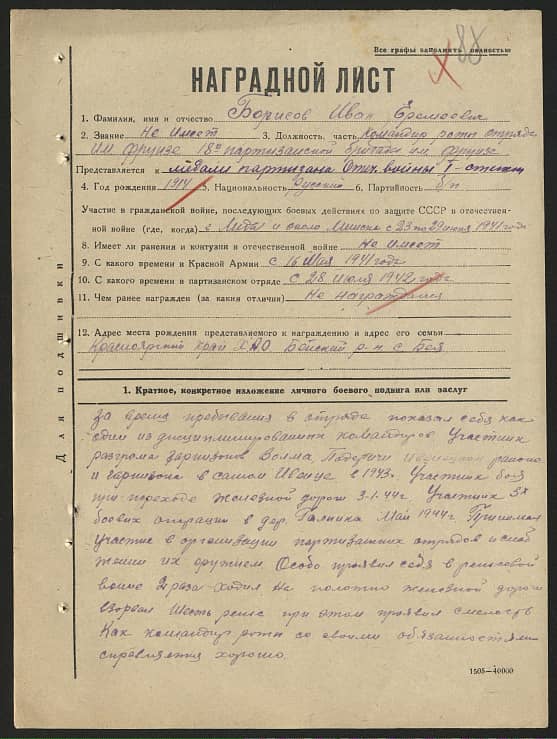 Все графы заполнять полностью
88
НАГРАДНОЙ ЛИСТ
1. Фамилия, имя и отчество Борисов Иван Еремеевич
2. Звание Не имеет 3. Должность, часть Командир роты отряда
им Фрунзе 18й партизанской бригады им Фрунзе
Представляется к медали партизана Отеч. войны I-степени
4. Год рождения 1914 5. Национальность Русский 6. Партийность б/п
Участие в гражданской войне, последующих боевых действиях по защите СССР в отечествен-
ной войне (где, когда) г. Лиды и около Минска с 23 по 29 июня 1941 года
8. Имеет ли ранения и контузии в отечественной войне Не имеет
9. С какого времени в Красной Армии с 16 Мая 1941 года
10. С какого времени в партизанском отряде с 28 июля 1942 года
11. Чем ранее награжден (за какия отличия) Не награждался
12. Адрес места рождения представляемого к награждению и адрес его семьи
Красноярский край Х.А.О. Бейский р-н с Бея
Для подшивки
1. Краткое, конкретное изложение личного боевого подвига или заслуг
За время пребывания в отряде показал себя как
один из дисциплинированных командиров Участник
разгрома гарнизонов Волма Ивенецкого района
и гарнизона в самом Ивенце в 1943г. Участник боя
при переходе железной дороги 3-1-44г. Участник 3х
боевых операции в дер. Май 1944г. Принимал
участие в организации партизанских отрядов и снаб
жении их оружием Особо проявил себя в рельсовой
войне 2 раза ходил на полотно железной дороги
взорвал шесть рельс при этом проявил смелость
Как командир роты со своими обязанностями
справляется хорошо.
1505—40000